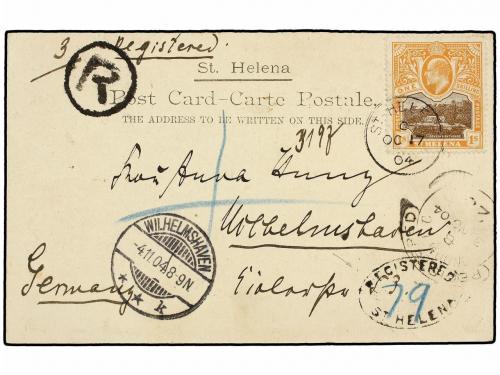 3 Registered.
R
St. Helena
Post Card–Carte Postale.
THE ADDRESS TO BE WRITTEN ON THIS SIDE.
ONE SHILLING
ST HELENA
OC 17
04
HELENA 1s
3198
Frau Anna
Wilhelmshaven
Germany
WILHELMSHAVEN
-4.11.04.8-9N
k
REGISTERED
79
ST HELENA